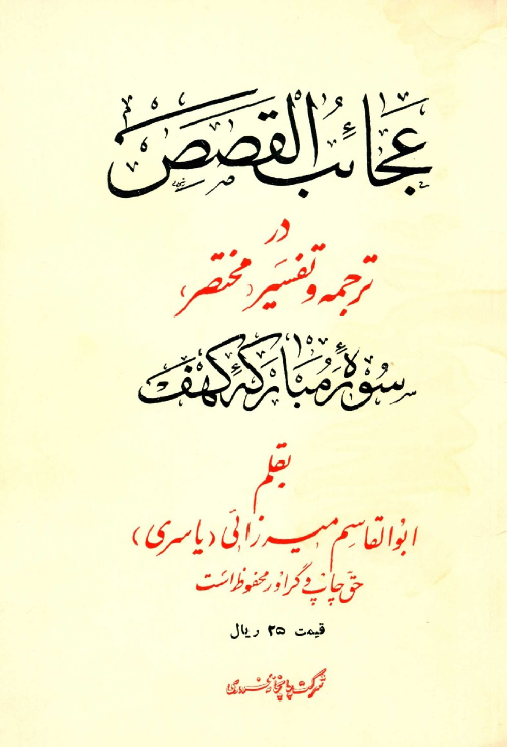 عجائب القصص
در
ترجمه و تفسیر (مختصر)
سورهٔ مبارکهٔ کهف
بقلم
ابوالقاسم میرزائی (یاسری)
حق چاپ و گراور محفوظ است
قیمت ۲۵ ریال
شرکت چاپخانه فردوسی